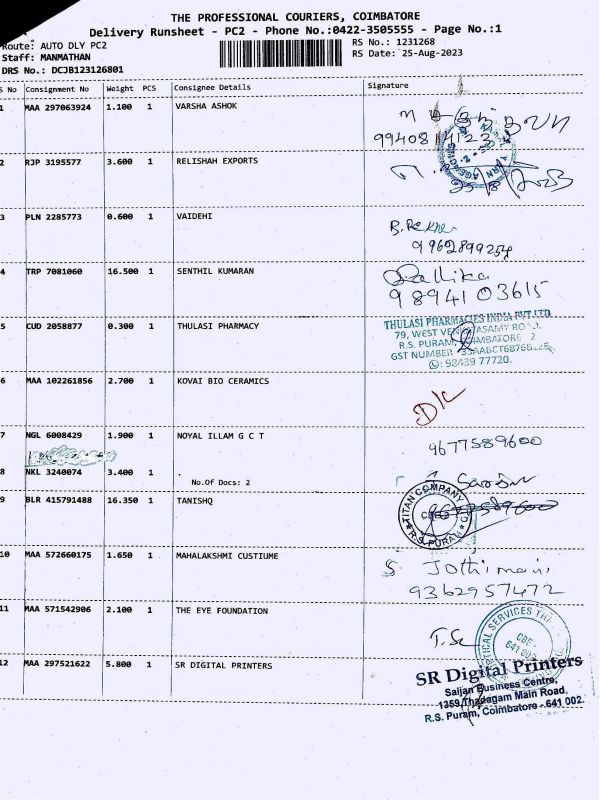 THE PROFESSIONAL COURIERS, COIMBATORE
Delivery Runsheet - PC2 - Phone No.:0422-3505555 - Page No.:1
Route: AUTO DLY PC2
RS No.: 1231268
Staff: MANMATHAN
RS Date: 25-Aug-2023
DRS No.: DCJB123126801
S No Consignment No Weight PCS Consignee Details Signature
1 MAA 297063924 1.100 1 VARSHA ASHOK
2 RJP 3195577 3.600 1 RELISHAH EXPORTS
3 PLN 2285773 0.600 1 VAIDEHI
9962899254
4 TRP 7081060 16.500 1 SENTHIL KUMARAN
9894103615
5 CUD 2058877 0.300 1 THULASI PHARMACY
THULASI PHARMACIES INDIA PVT LTD
79, WEST
R.S. PURAM, COIMBATORE 2
GST NUMBER
98439 77720.
6 MAA 102261856 2.700 1 KOVAI BIO CERAMICS
D/C
7 NGL 6008429 1.900 1 NOYAL ILLAM G C T
9677589600
8 NKL 3240074 3.400 1 .
No.Of Docs: 2
9 BLR 415791488 16.350 1 TANISHQ
TITAN COMPANY
R.S. PURAM
10 MAA 572660175 1.650 1 MAHALAKSHMI CUSTIUME
S. Jothimani
9362957472
11 MAA 571542906 2.100 1 THE EYE FOUNDATION
12 MAA 297521622 5.800 1 SR DIGITAL PRINTERS
SR Digital Printers
Saijan Business Centre,
1359, Thadagam Main Road,
R.S. Puram, Coimbatore - 641 002.